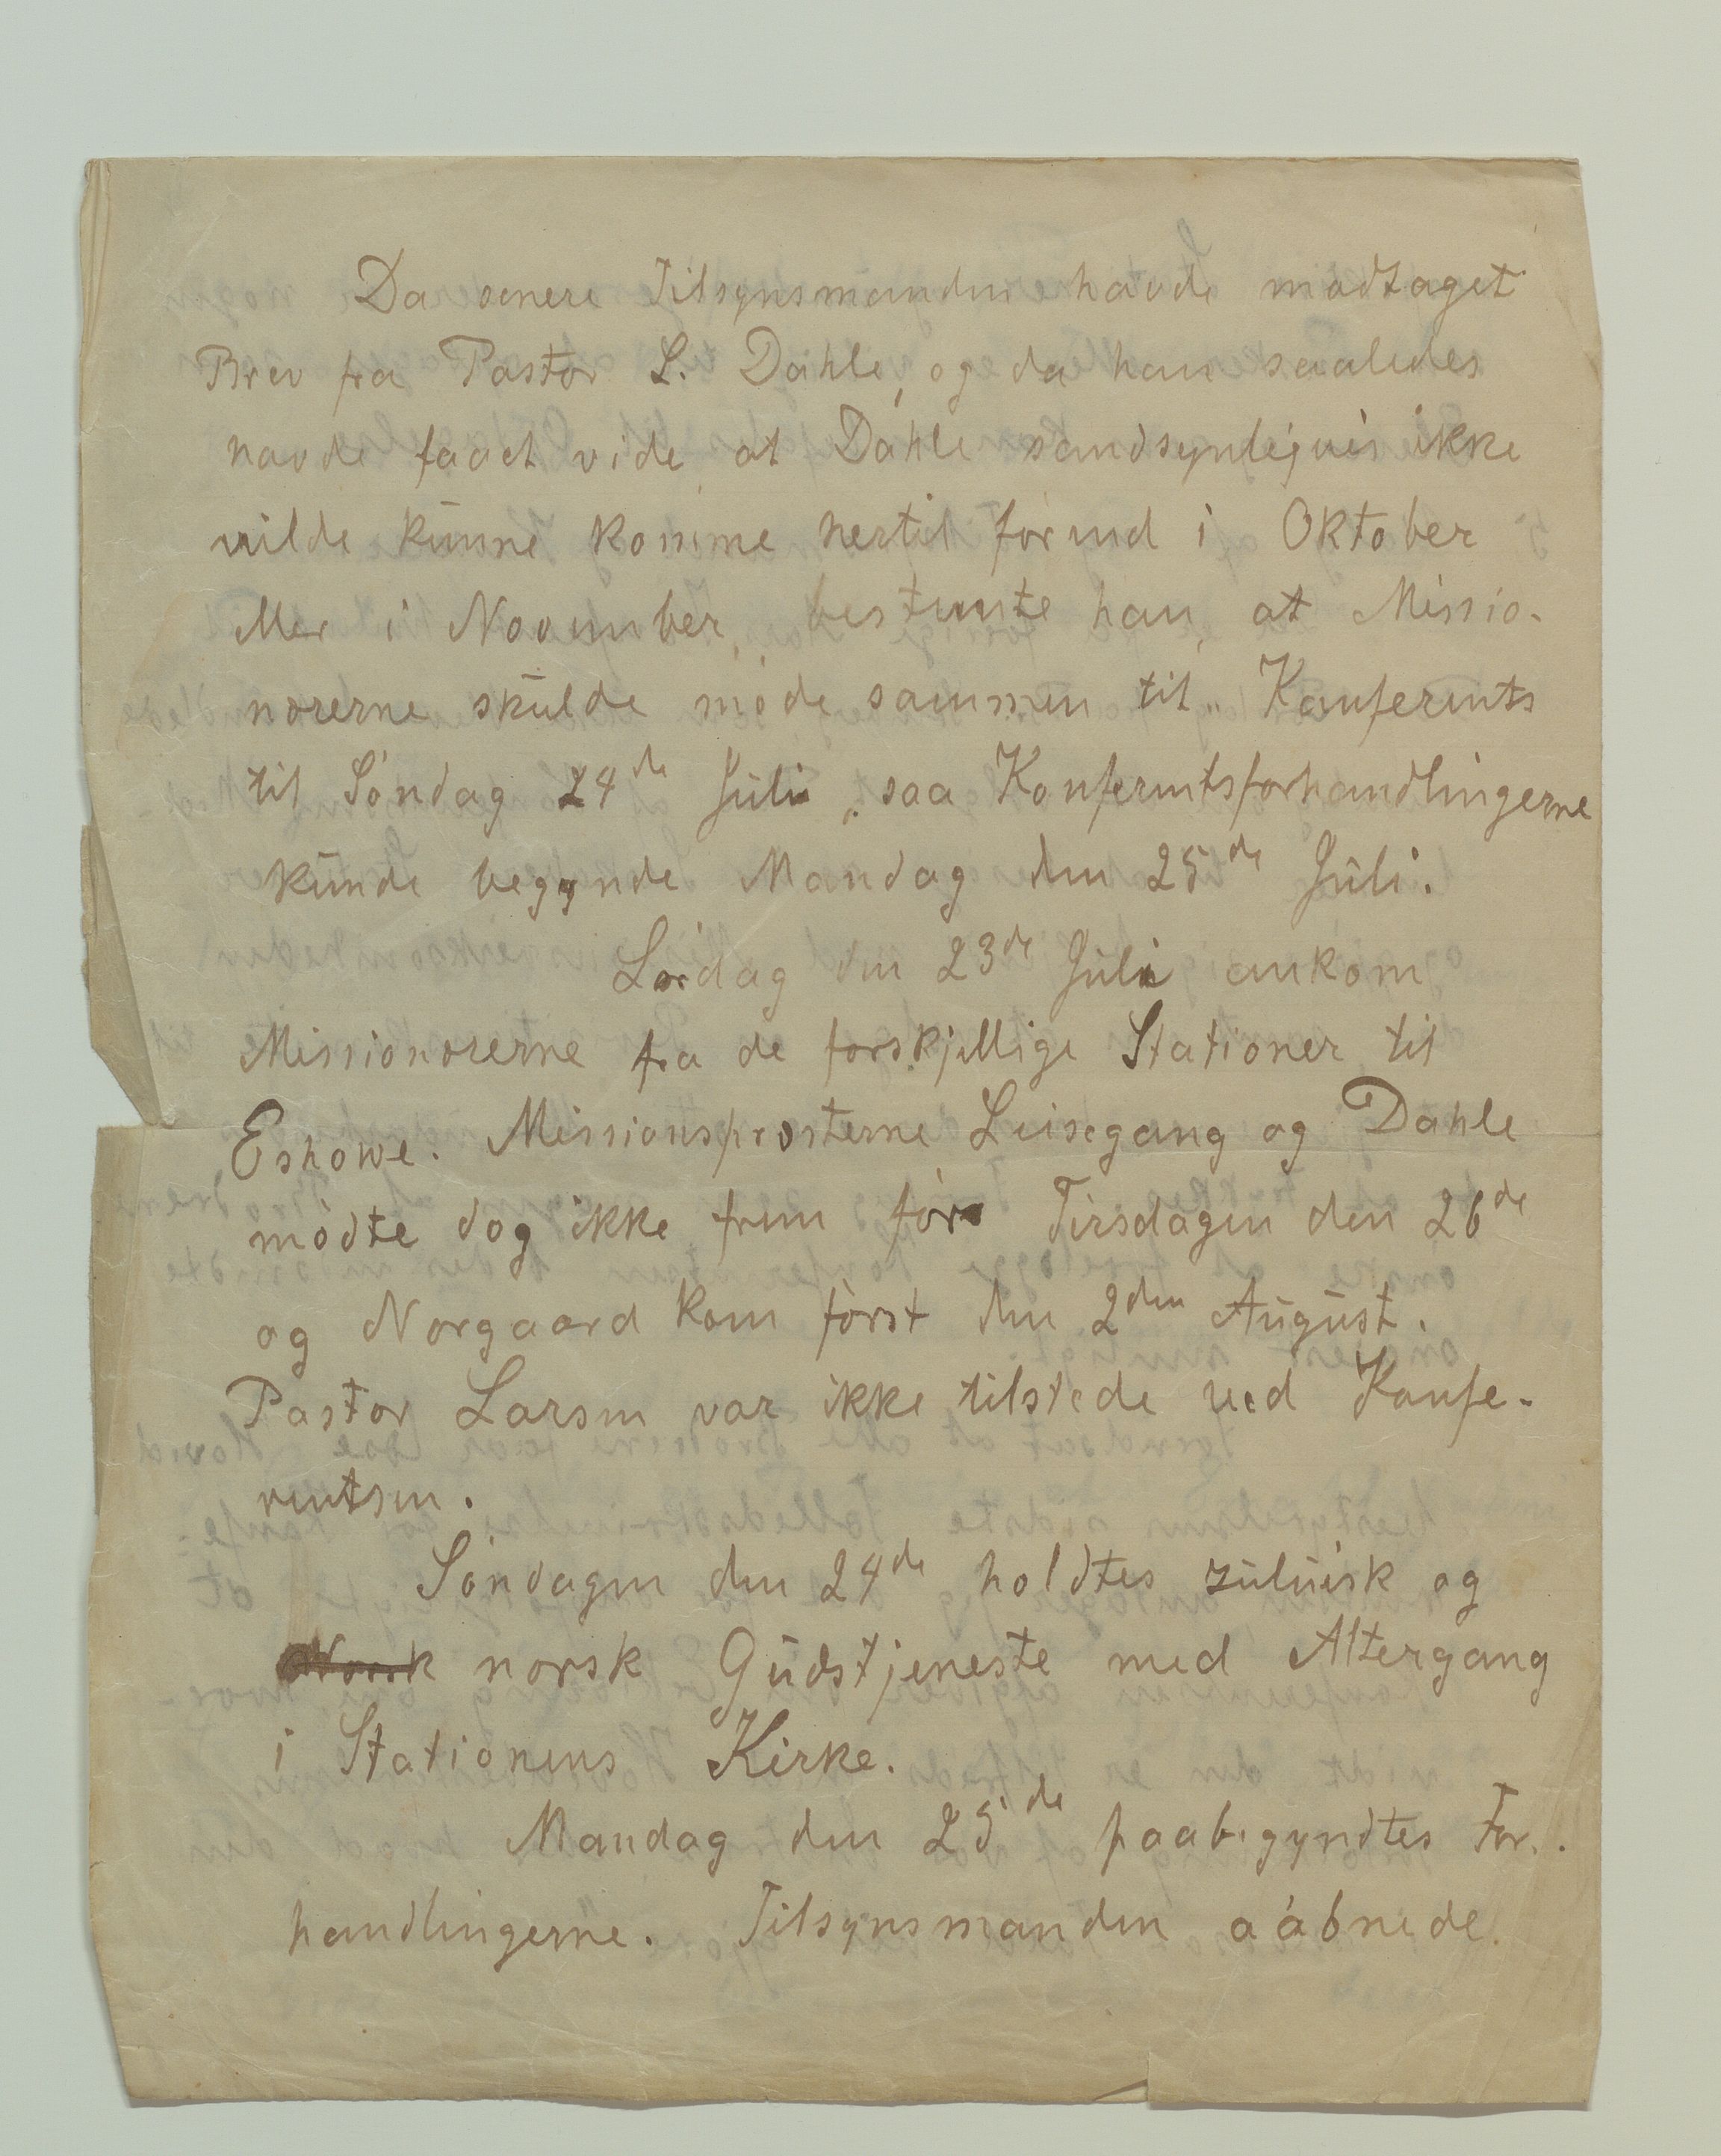 Da senere Tilsynsmanden havde modtaget
Brev fra Pastor L. Dahle, og da han saaledes
havde faaet vide, at Dahle sandsynligvis ikke
vilde kunne komme hertil förend i Oktober
eller i November, bestemte han, at Missio-
nærerne skulde möde sammen til Konferents
til Söndag 24de Juli, saa Konferentsforhandlingerne
kunde begynde Mandag den 25de Juli.
Lørdag den 23de Juli ankom
Missionærerne fra de forskjellige Stationer til
Eshowe. Missionspræsterne Leisegang og Dahle
mödte dog ikke frem för Tirsdagen den 26de
og Norgaard kom först den 2den August.
Pastor Larsen var ikke tilstede ved Konfe-
rentsen.
Söndagen den 24de holdtes zuluisk og
Norsk norsk Gudstjeneste med Altergang
i Stationens Kirke.
Mandag den 25de paabegyndtes For-
handlingerne. Tilsynsmanden aabnede